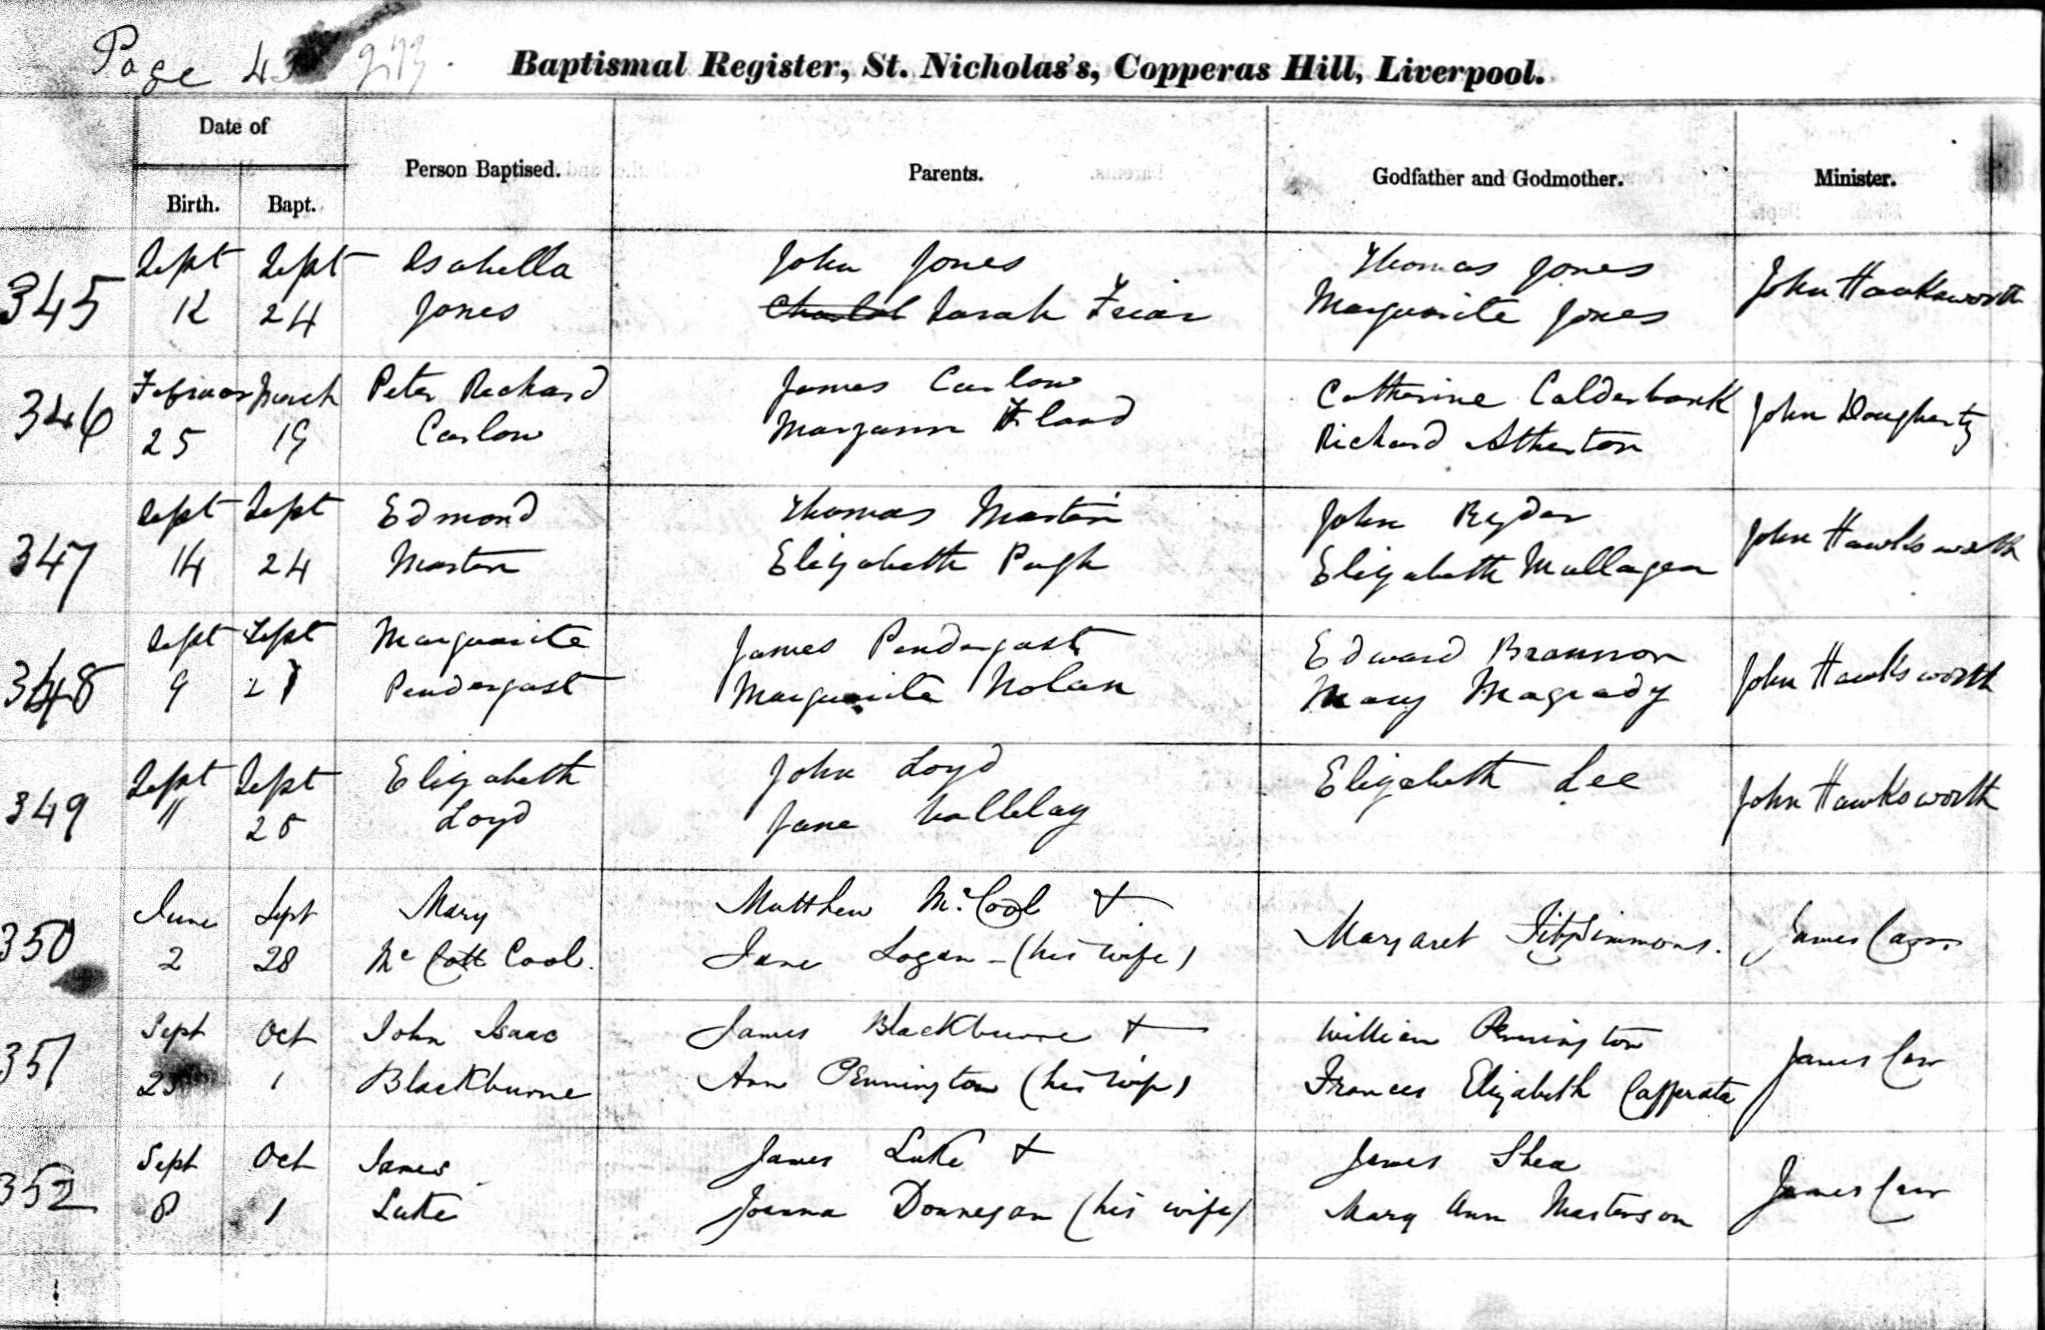 Page 43
Baptismal Register, St. Nicholas's, Copperas Hill, Liverpool.
Date of
Birth. Bapt. Person Baptised. Parents. Godfather and Godmother. Minister.
345 Sept Sept Isabella John Jones Thomas Jones John Hawksworth
12 24 Jones Sarah Friar Marguerite Jones
346 Februar March Peter Richard James Carlow Catherine Calderbank John Dougherty
25 19 Carlow Maryann Richard Atherton
347 Sept Sept Edmond Thomas Martin John Ryder John Hawksworth
14 24 Martin Elizabeth Pugh Elizabeth Mullagen
348 Sept Sept Marguerite James Pendergast Edward Brannon John Hawksworth
9 27 Pendergast Marguerite Nolan Mary Magrady
349 Sept Sept Elizabeth John Loyd Elizabeth Lee John Hawksworth
" 28 Loyd Jane
350 June Sept Mary Matthew McCool + Margaret FitzSimmons. James Carr
2 28 Mc Cool. Jane Logan - (his wife)
351 Sept Oct John Isaac James Blackburne + William Pennington James Carr
1 Blackburne Ann Pennington (his wife) Frances Elizabeth Cafferata
352 Sept Oct James James Luke + James Shea James Carr
8 1 Luke Joanna Donnegan (his wife) Mary Ann Masterson